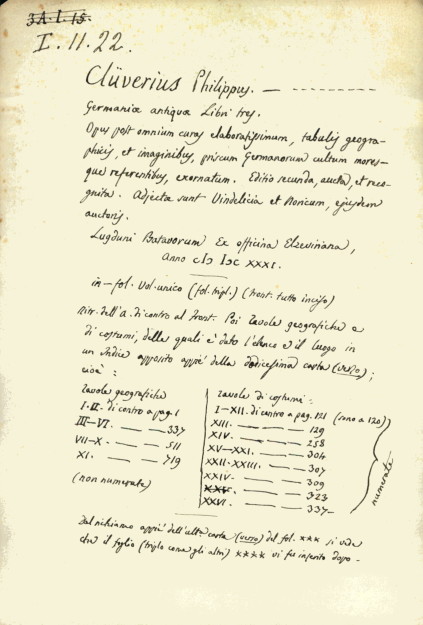 3.A.I.15.
I.11.22.
Clüverius Philippus. —
Germaniæ antiquæ Libri tres.
Opus post omnium curas elaboratissimum, tabulis geogra-
phicis, et imaginibus, priscum Germanorum cultum mores-
que referentibus, exornatum. Editio secunda, aucta, et reco-
gnita. Adjectæ sunt Vindelicia et Noricum, ejusdem
auctoris.
Lugduni Batavorum Ex officina Elzeviriana,
Anno cIɔ Iɔc XXXI.
in-fol. vol. unico (fol. tripl.) (front. tutto inciso)
Ritr. dell'A. di contro al front. Poi tavole geografiche e
di costumi, delle quali è dato l'elenco e il luogo in
un Indice apposito appiè della dodicesima carta (verso);
cioè:
Tavole geografiche
I-II. di contro a pag. 1
III-VI. — — 337
VII-X. — — 511
XI. — — 719
(non numerate)
Tavole di costumi:
I-XII. di contro a pag. 121 (sono a 120)
XIII. — — 129
XIV. — — 258
XV-XXI. — — 304
XXII-XXIII. — — 307
XXIV. — — 309
XXV. — — 323
XXVI. — — 337
numerate
appiè dell' carta (verso) del fol. *** si vede
che il foglio (triplo come gli altri) **** vi fu inserito dopo.